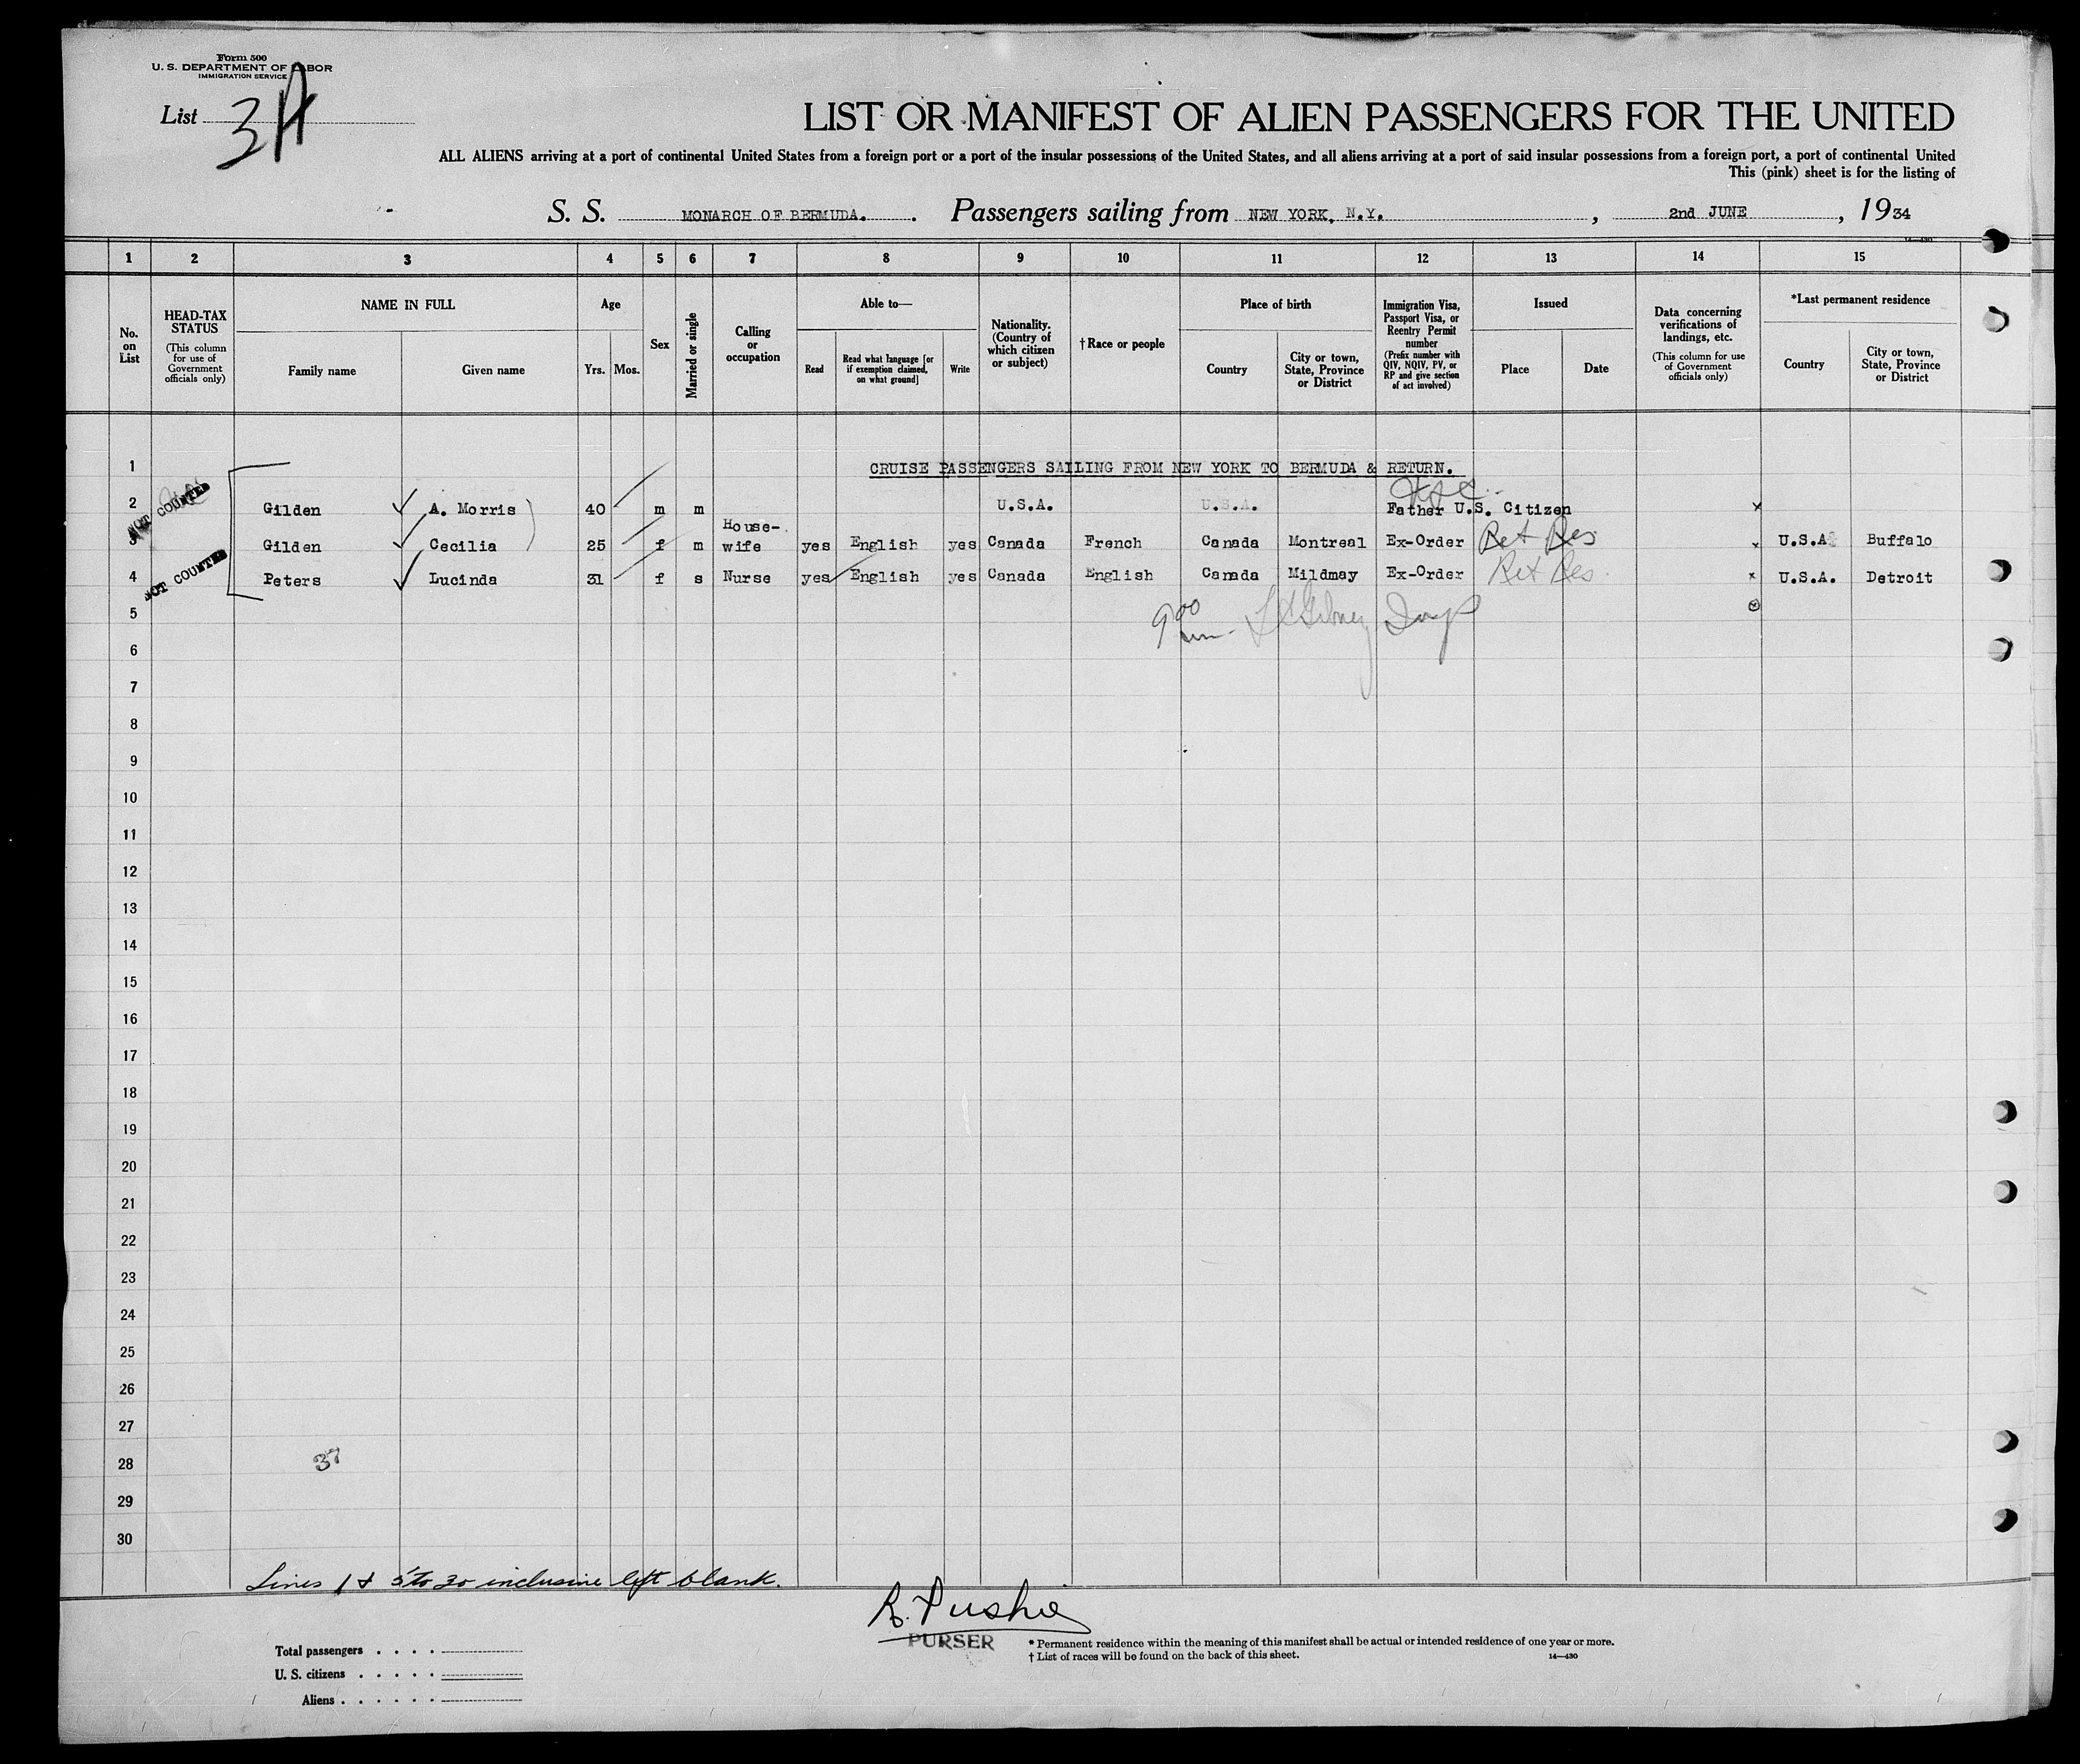 Form 500
U. S. DEPARTMENT OF LABOR
IMMIGRATION SERVICE
List 3A
LIST OR MANIFEST OF ALIEN PASSENGERS FOR THE UNITED
ALL ALIENS arriving at a port of continental United States from a foreign port or a port of the insular possessions of the United States, and all aliens arriving at a port of said insular possessions from a foreign port, a port of continental United
This (pink) sheet is for the listing of
S. S. MONARCH OF BERMUDA. Passengers sailing from NEW YORK, N.Y. , 2nd JUNE , 1934
14—430
1 2 3 4 5 6 7 8 9 10 11 12 13 14 15
No. on List
HEAD-TAX STATUS (This column for use of Government officials only)
NAME IN FULL
Family name Given name
Age
Yrs. Mos.
Sex
Married or single
Calling or occupation
Able to—
Read Read what language [or if exemption claimed, on what ground] Write
Nationality. (Country of which citizen or subject)
†Race or people
Place of birth
Country City or town, State, Province or District
Immigration Visa, Passport Visa, or Reentry Permit number (Prefix number with QIV, NQIV, PV, or RP and give section of act involved)
Issued
Place Date
Data concerning verifications of landings, etc. (This column for use of Government officials only)
*Last permanent residence
Country City or town, State, Province or District
1 CRUISE PASSENGERS SAILING FROM NEW YORK TO BERMUDA & RETURN.
NOT COUNTED
2 Gilden A. Morris 40 m m U.S.A. U.S.A. Father U.S. Citizen x
3 Gilden Cecilia 25 f m House-wife yes English yes Canada French Canada Montreal Ex-Order Ret Res U.S.A. Buffalo
NOT COUNTED
4 Peters Lucinda 31 f s Nurse yes English yes Canada English Canada Mildmay Ex-Order Ret Res x U.S.A. Detroit
5
900
6
7
8
9
10
11
12
13
14
15
16
17
18
19
20
21
22
23
24
25
26
27
28 37
29
30
Lines 1 & 5 to 30 inclusive left blank.
R. Pushie
PURSER
Total passengers
U. S. citizens
Aliens
* Permanent residence within the meaning of this manifest shall be actual or intended residence of one year or more.
† List of races will be found on the back of this sheet.
14—430